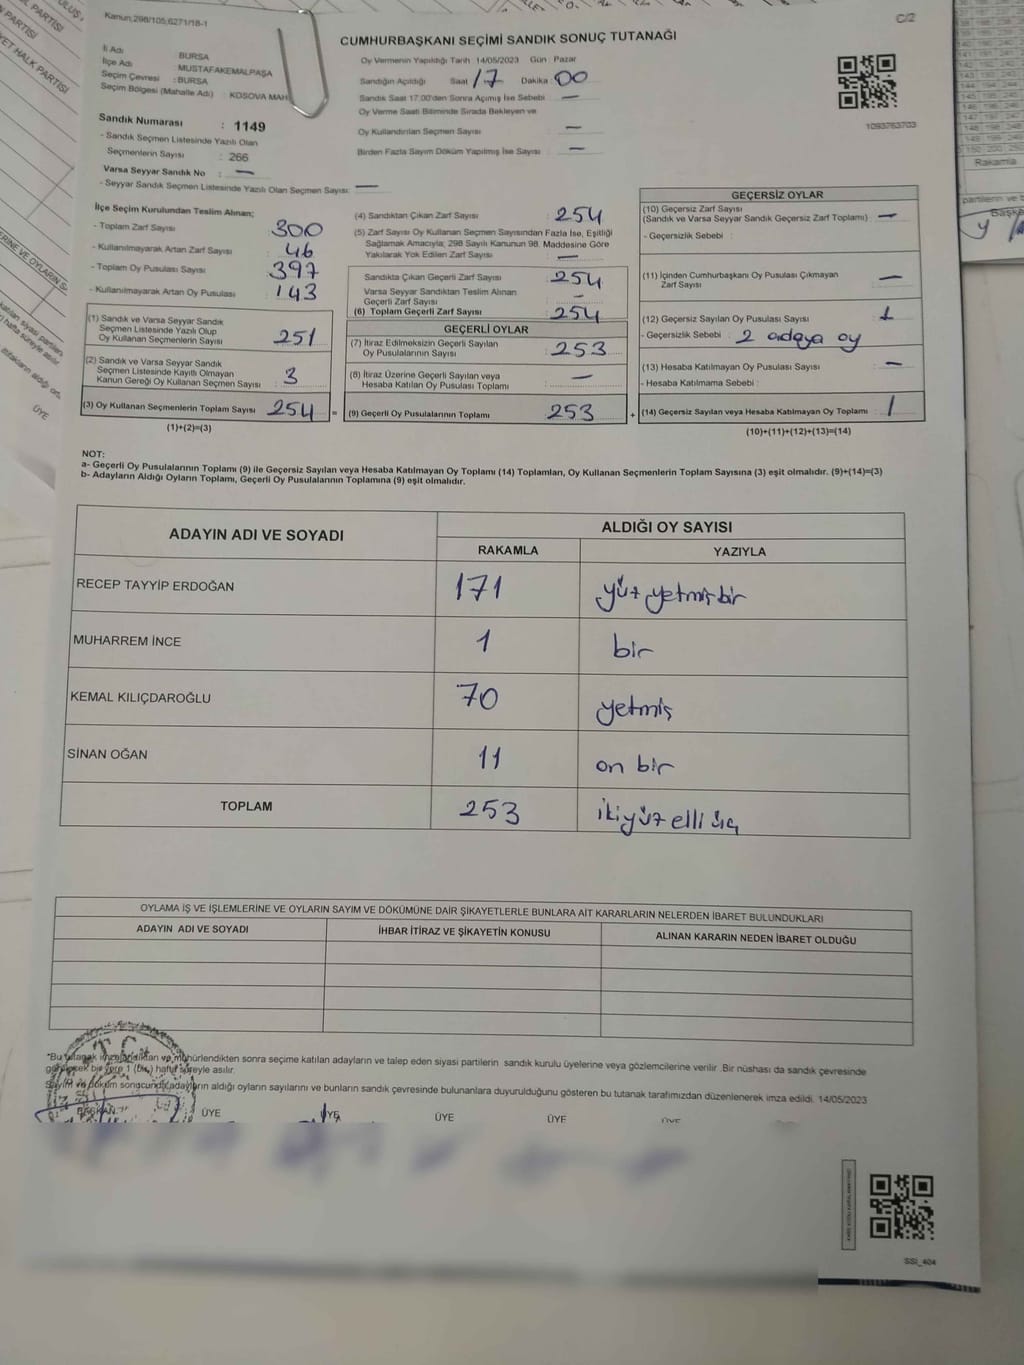 Kanun;298/105;6271/18-1
C/2
CUMHURBAŞKANI SEÇİMİ SANDIK SONUÇ TUTANAĞI
İl Adı : BURSA
İlçe Adı : MUSTAFAKEMALPAŞA
Seçim Çevresi : BURSA
Seçim Bölgesi (Mahalle Adı) : KOSOVA MAH
Sandık Numarası : 1149
- Sandık Seçmen Listesinde Yazılı Olan
Seçmenlerin Sayısı : 266
Varsa Seyyar Sandık No : —
- Seyyar Sandık Seçmen Listesinde Yazılı Olan Seçmen Sayısı: —
Oy Vermenin Yapıldığı Tarih 14/05/2023 Gün Pazar
Sandığın Açıldığı Saat 17 Dakika 00
Sandık Saat 17:00'den Sonra Açmış İse Sebebi —
Oy Verme Saati Bitiminde Sırada Bekleyen ve
Oy Kullandırılan Seçmen Sayısı —
Birden Fazla Sayım Döküm Yapılmış İse Sayısı —
1093763703
İlçe Seçim Kurulundan Teslim Alınan;
- Toplam Zarf Sayısı : 300
- Kullanılmayarak Artan Zarf Sayısı : 46
- Toplam Oy Pusulası Sayısı : 397
- Kullanılmayarak Artan Oy Pusulası : 143
(1) Sandık ve Varsa Seyyar Sandık
Seçmen Listesinde Yazılı Olup
Oy Kullanan Seçmenlerin Sayısı : 251
(2) Sandık ve Varsa Seyyar Sandık
Seçmen Listesinde Kayıtlı Olmayan
Kanun Gereği Oy Kullanan Seçmen Sayısı : 3
(3) Oy Kullanan Seçmenlerin Toplam Sayısı : 254
(1)+(2)=(3)
(4) Sandıktan Çıkan Zarf Sayısı : 254
(5) Zarf Sayısı Oy Kullanan Seçmen Sayısından Fazla İse, Eşitliği
Sağlamak Amacıyla; 298 Sayılı Kanunun 98. Maddesine Göre
Yakılarak Yok Edilen Zarf Sayısı : —
Sandıkta Çıkan Geçerli Zarf Sayısı : 254
Varsa Seyyar Sandıktan Teslim Alınan
Geçerli Zarf Sayısı : —
(6) Toplam Geçerli Zarf Sayısı : 254
GEÇERLİ OYLAR
(7) İtiraz Edilmeksizin Geçerli Sayılan
Oy Pusulalarının Sayısı : 253
(8) İtiraz Üzerine Geçerli Sayılan veya
Hesaba Katılan Oy Pusulası Toplamı : —
= (9) Geçerli Oy Pusulalarının Toplamı : 253
GEÇERSİZ OYLAR
(10) Geçersiz Zarf Sayısı
(Sandık ve Varsa Seyyar Sandık Geçersiz Zarf Toplamı) : —
- Geçersizlik Sebebi :
(11) İçinden Cumhurbaşkanı Oy Pusulası Çıkmayan
Zarf Sayısı : —
(12) Geçersiz Sayılan Oy Pusulası Sayısı : 1
- Geçersizlik Sebebi : 2 adaya oy
(13) Hesaba Katılmayan Oy Pusulası Sayısı : —
- Hesaba Katılmama Sebebi :
+ (14) Geçersiz Sayılan veya Hesaba Katılmayan Oy Toplamı : 1
(10)+(11)+(12)+(13)=(14)
NOT:
a- Geçerli Oy Pusulalarının Toplamı (9) ile Geçersiz Sayılan veya Hesaba Katılmayan Oy Toplamı (14) Toplamları, Oy Kullanan Seçmenlerin Toplam Sayısına (3) eşit olmalıdır. (9)+(14)=(3)
b- Adayların Aldığı Oyların Toplamı, Geçerli Oy Pusulalarının Toplamına (9) eşit olmalıdır.
ADAYIN ADI VE SOYADI
ALDIĞI OY SAYISI
RAKAMLA YAZIYLA
RECEP TAYYİP ERDOĞAN 171 yüz yetmiş bir
MUHARREM İNCE 1 bir
KEMAL KILIÇDAROĞLU 70 yetmiş
SİNAN OĞAN 11 on bir
TOPLAM 253 iki yüz elli üç
OYLAMA İŞ VE İŞLEMLERİNE VE OYLARIN SAYIM VE DÖKÜMÜNE DAİR ŞİKAYETLERLE BUNLARA AİT KARARLARIN NELERDEN İBARET BULUNDUKLARI
ADAYIN ADI VE SOYADI İHBAR İTİRAZ VE ŞİKAYETİN KONUSU ALINAN KARARIN NEDEN İBARET OLDUĞU
*Bu tutanak imzalandıktan ve mühürlendikten sonra seçime katılan adayların ve talep eden siyasi partilerin sandık kurulu üyelerine veya gözlemcilerine verilir. Bir nüshası da sandık çevresinde
görülecek bir yere 1 (bir) hafta süreyle asılır.
Sayım ve döküm sonucunda adayların aldığı oyların sayılarını ve bunların sandık çevresinde bulunanlara duyurulduğunu gösteren bu tutanak tarafımızdan düzenlenerek imza edildi. 14/05/2023
BAŞKAN ÜYE ÜYE ÜYE ÜYE ÜYE
SSİ_404